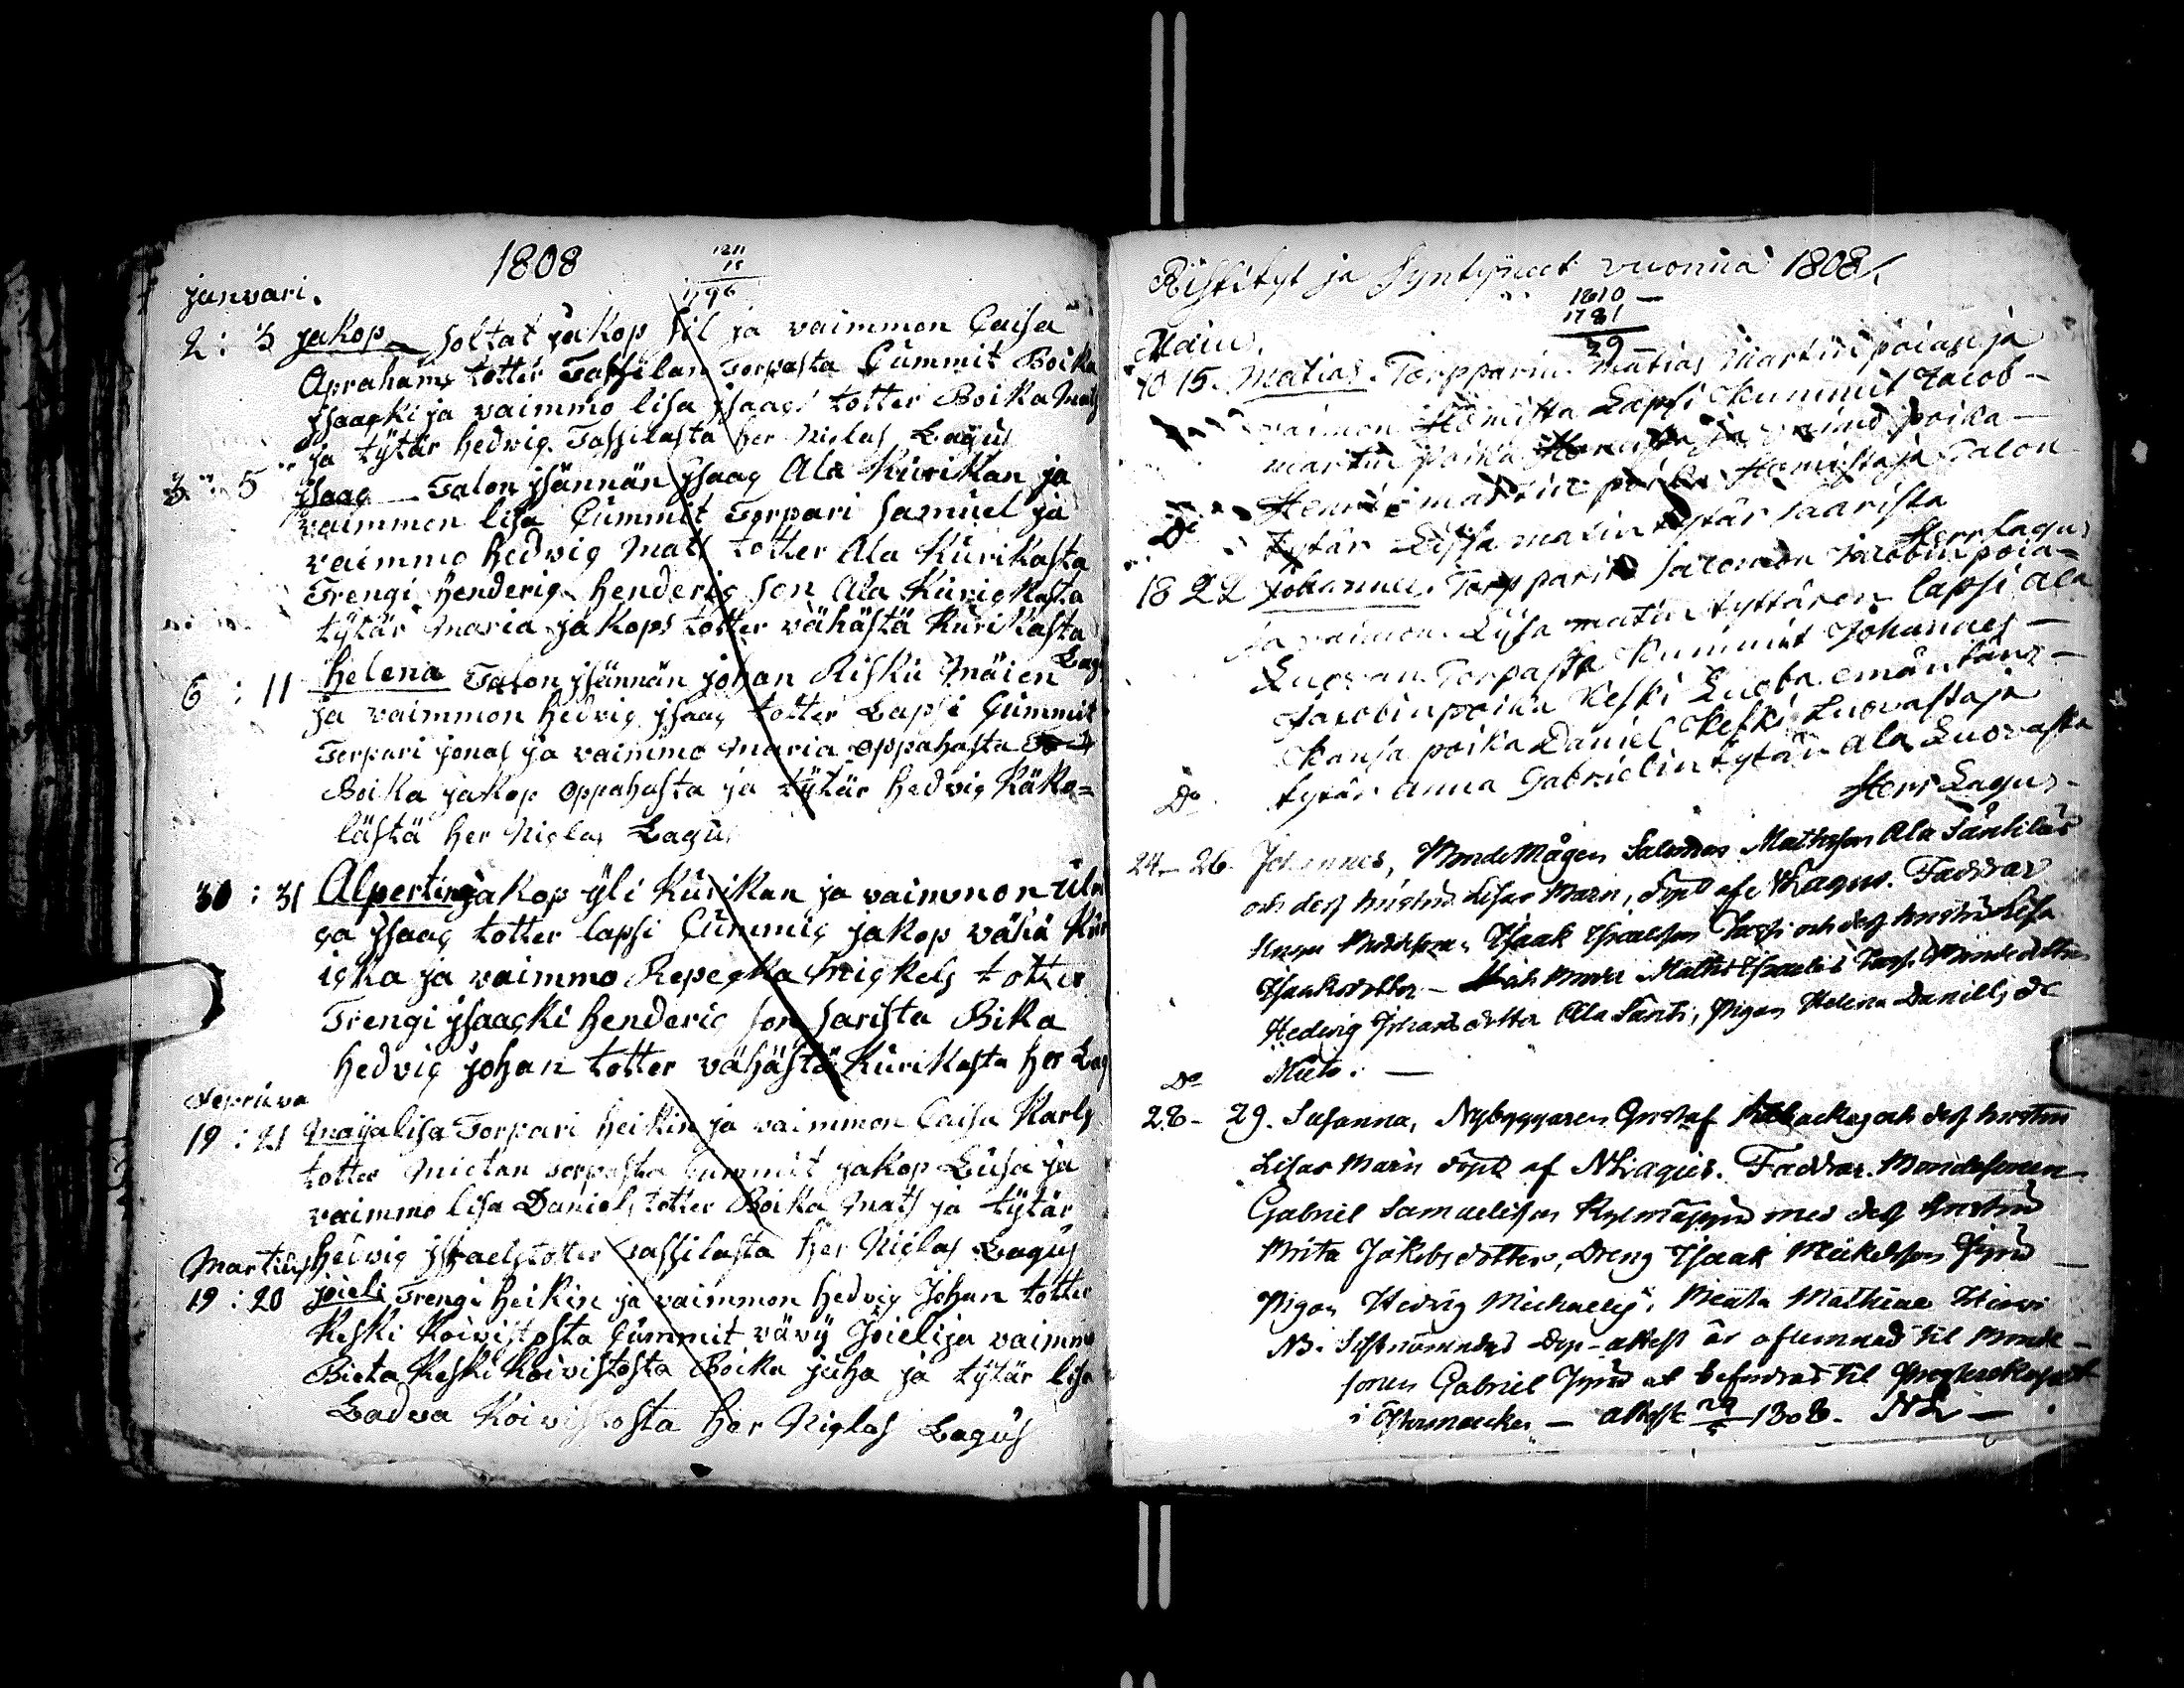 1808
1211
15
1796
januari.
2: 3 jakop soltat jakop sil ja vaimmon Caisa
Aprahams totter Tassilan Torpasta Cummit Boika
jsaacki ja vaimmo lisa jsaacs totter Boika Mats
ja tytär hedvig Tassilasta her Niclas Lagus
3 5 jsaac Talon jsännän jsaac Ala Kurikan ja
vaimmon lisa Cummit Torpari samuel ja
vaimmo hedvig Mats totter Ala Kurikasta
Trengi henderic henderic son Ala Kurickasta
tytär Maria jakops totter vähästä Kurikasta
Lag
6 : 11 helena Talon jsännän johan Risku Mäien
ja vaimmon hedvig jsaac totter Lapsi Cummit
Torpari jonas ja vaimmo Maria oppahasta
Boika jakop oppahasta ja tytär hedvig Käko=
lästä her Niclas Lagus
30 : 31 Alpertina jakop yli Kurikan ja vaimmon Ulri
ca jsaac totter lapsi Cummic jakop vähä Kur
icka ja vaimmo Repecka Mickels totter
Trengi jsaacki henderic son sarista Bika
hedvig johan totter vähästä Kurikasta her Lag
Fepruva
19 : 21 Mayalisa Torpari heikin ja vaimmon Caisa Karls
totter Mietan torpasta Cummit jakop Lusa ja
vaimmo lisa Daniels totter Boika Mats ja tytär
hedvig jsraels totter Tassilasta her Niclas Lagus
Martius
19 : 20 joieli Trengi heikin ja vaimmon hedvig Johan totter
Keski Koivistosta Cummit vävy Joieli ja vaimmo
Bieta Keski Koivistosta Boika juha ja tytär lisa
Ladva Koivistosta her Niclas Lagus
Ristityt ja Syntynet vuonna 1808
1810
1781
29
Maius.
10 15. Matias. Torpparin Matias Martin poian ja
vaimon Lapsi Kummit Jacob
martin poika poika
martin poika ja Talon
Do tytär Liisa matin tytär Saarista
Herr Lagus
18 22 Johannes. Torpparin Salomon Jacobin poia=
ja vaimon Liisa matin tyttären lapsi ala
Luovan Torpasta Kummit Johannes
Jacobin poika Keski Luoba emäntäns
Kansa poika Daniel Keski Luovasta ja
Do tytär Anna Gabrielin tytär Ala Luovasta
Herr Lagus
24 - 26. Johannes, Bondemågen Salomon Mathsson Ala Säntilär
och dess hustru Lisas Barn, döpt af NLagus. Faddrar
Isaak Israelsson och dess hustru Lisa
Isaksdotter - Maths Israels
Hedvig Johansdotter Ala Sänti, Pigan Helena Daniels dr
Do Mieto.
28 - 29. Susanna, Nybyggaren Gustaf och dess hustru
Lisas Barn döpt af NLagus. Faddrar. Bondesonen
Gabriel Samuelsson med dess hustru
Brita Jakobsdotter, Dreng Isaak Mickelsson
Pigan Hedvig Michaels, Beata Mathiae
NB. Sistnämndes Dop-attest är aflemnad til Bonde-
sonen Gabriel at befordras til
i - attest 29 1808. NL